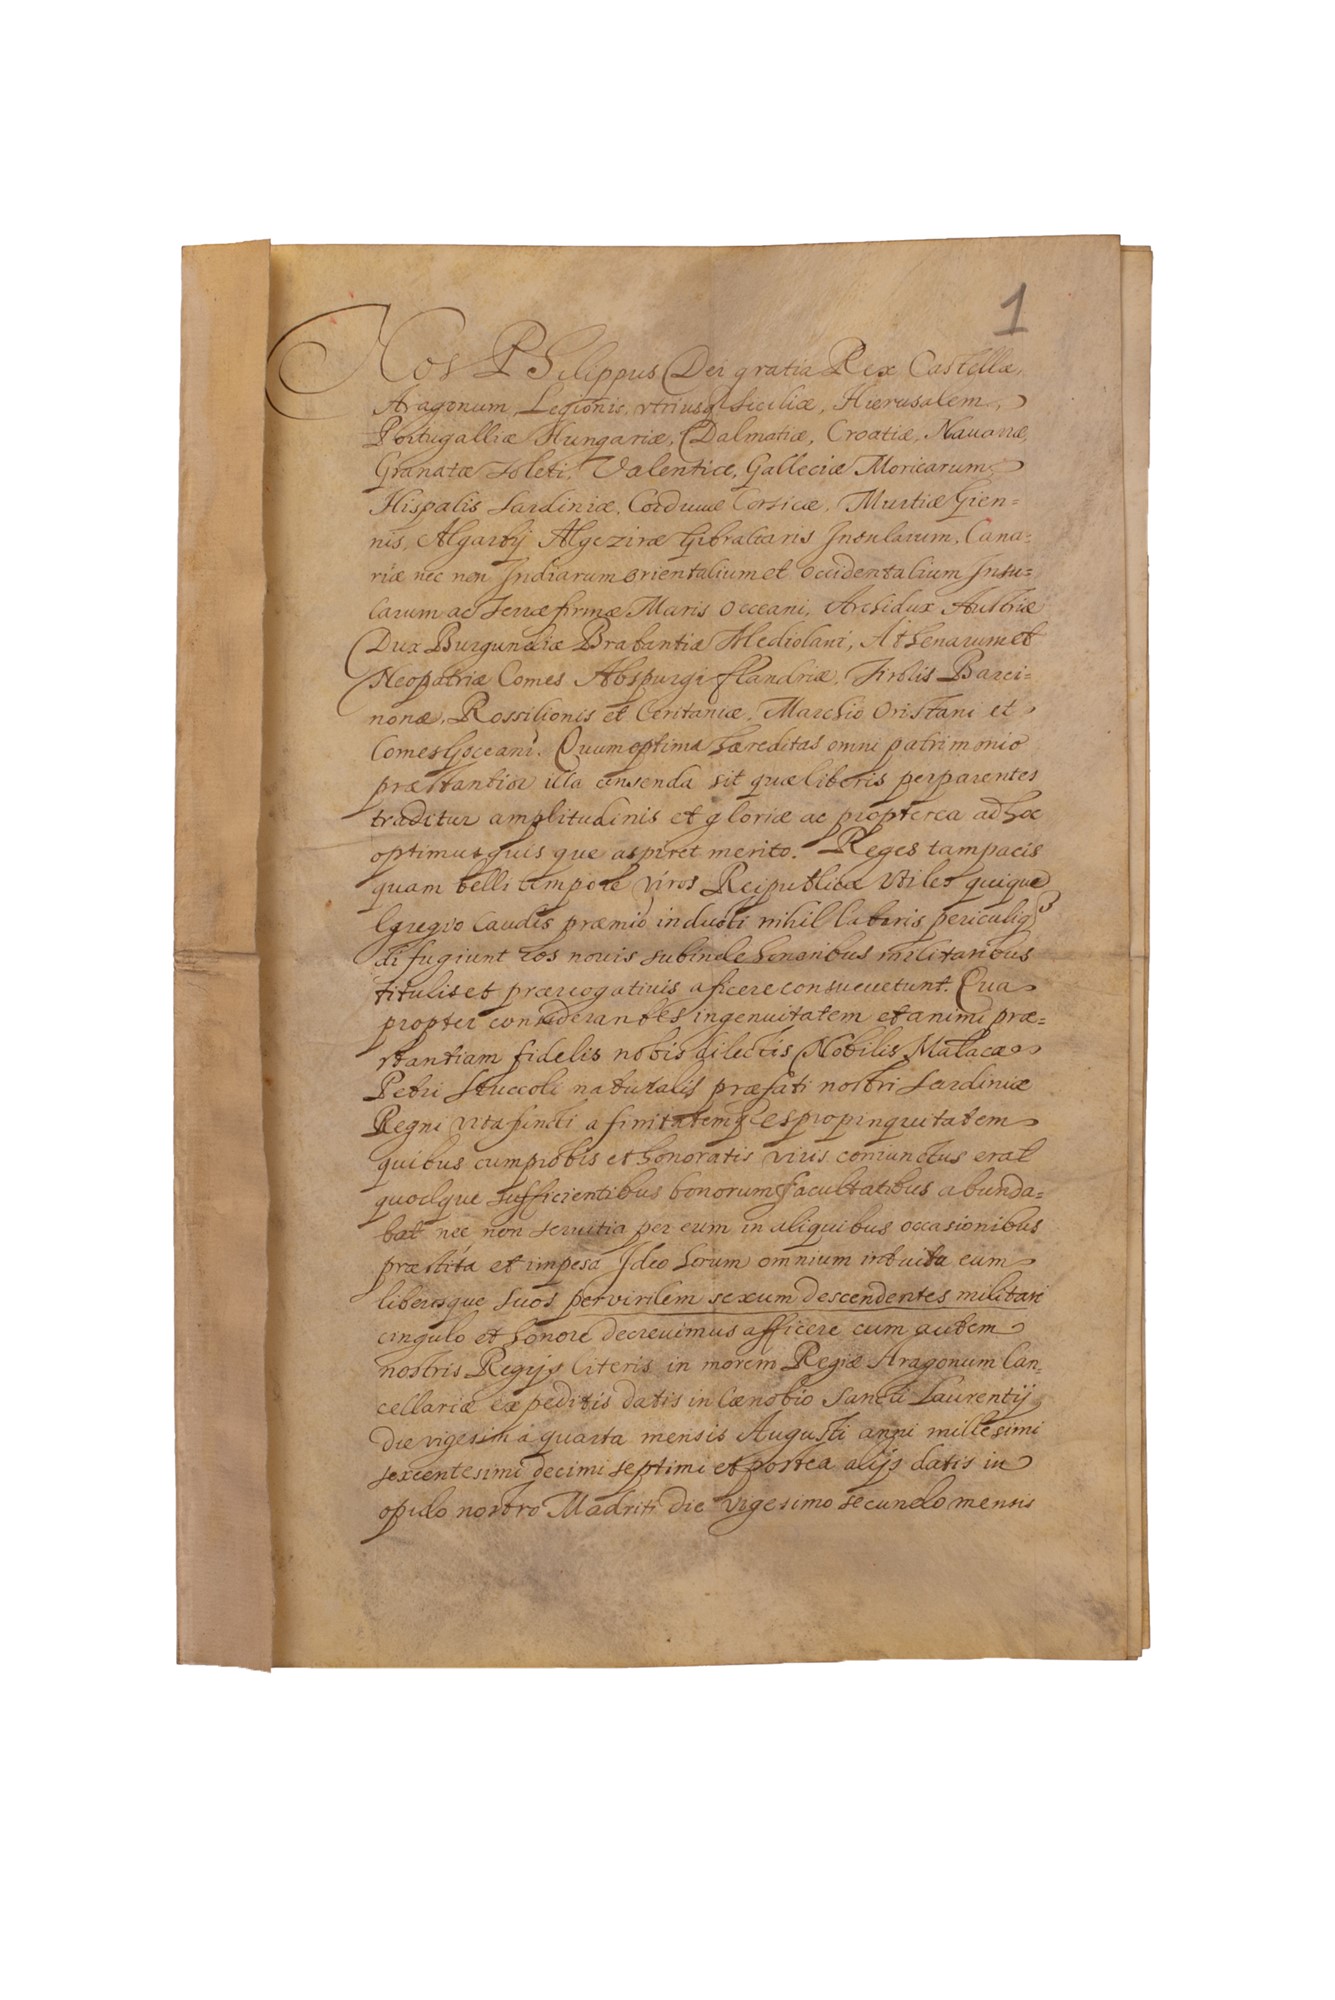 1
Nos Philippus Dei gratia Rex Castellæ,
Aragonum, Legionis, vtriusq Siciliæ, Hierusalem,
Portugalliæ Hungariæ, Dalmatiæ, Croatiæ, Nauarræ,
Granatæ Toleti, Valentiæ, Galleciæ Moricarum,
Hispalis Sardiniæ, Corduuæ Corsicæ, Murtiæ Gien-
nis, Algarbij Algeziræ Gibraltaris Insularum, Cana-
riæ nec non Indiarum orientalium et occidentalium Insu-
larum ac Terræfirmæ Maris Occeani, Archidux Austriæ
Dux Burgundiæ Brabantiæ Mediolani, Athenarum et
Neopatriæ Comes Abspurgi flandriæ, Tirolis Barci-
nonæ, Rossilionis et Ceritaniæ, Marchio Oristani et
Comes Goceani. Quum optima hæreditas omni patrimonio
præstantior illa censenda sit quæ liberis per parentes
traditur amplitudinis et gloriæ ac propterea ad hoc
optimus quis que aspiret merito. Reges tam pacis
quam belli tempore viros Reipublicæ vtiles quique
Egregio laudis præmio inducti nihil laboris periculiq
difugiunt eos nouis subinde honoribus militaribus
titulis et prærrogatiuis aficere consueuerunt. Qua
propter considerantes ingenuitatem et animi præ-
stantiam fidelis nobis dilectis Nobilis Matacæ
Petri Stuccoli naturalis præfati nostri Sardiniæ
Regni vita functi afinitatemq espropinquitatem
quibus cum probis et honoratis viris coniunctus erat
quodque sufficientibus bonorum facultatibus abunda-
bat nec non seruitia per eum in aliquibus occasionibus
præstita et impesa Ideo horum omnium intuitu eum
liberosque suos per virilem sexum descendentes militari
cingulo et honore decreuimus afficere cum autem
nostris Regijs literis in morem Regiæ Aragonum Can-
cellariæ expeditis datis in Cænobio Sancti Laurentij
die vigesima quarta mensis Augusti anni millesimi
sexcentesimi decimi septimi et postea alijs datis in
opido nostro Madriti die vigesimo secundo mensis